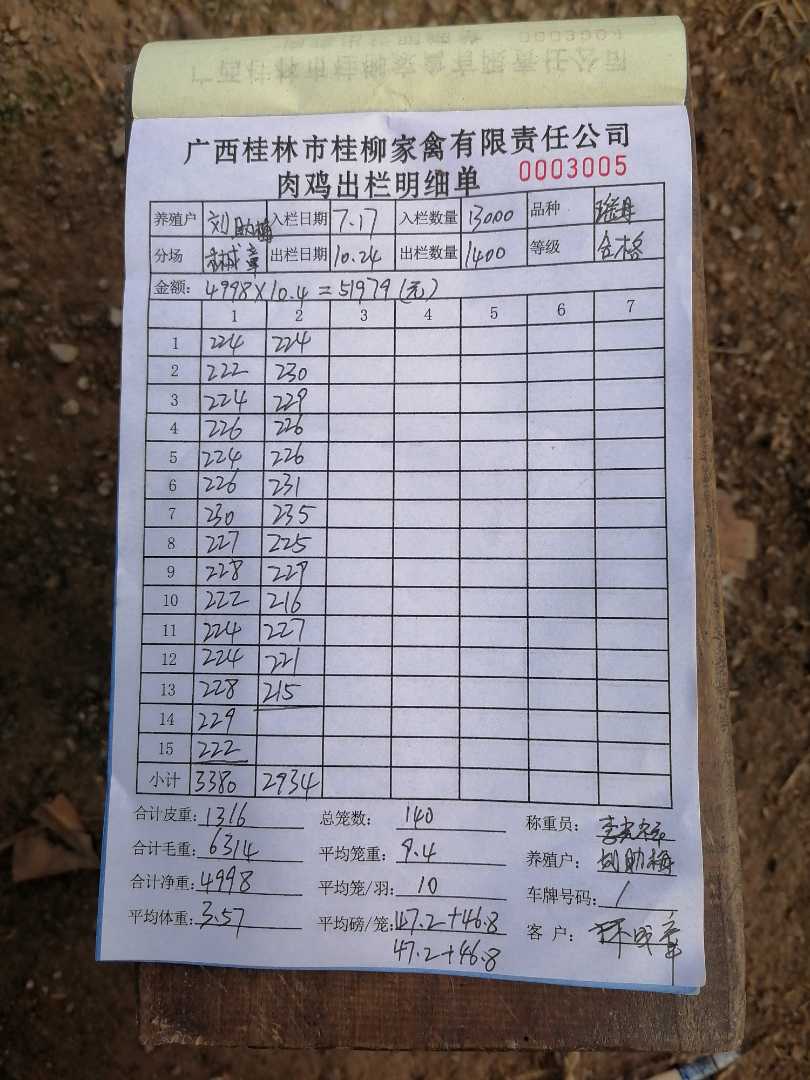 广西桂林市桂柳家禽有限责任公司
肉鸡出栏明细单 0003005
养殖户 刘助梅 入栏日期 7.17 入栏数量 13000 品种
分场 林成章 出栏日期 10.24 出栏数量 1400 等级 合格
金额: 4998×10.4=51979(元)
1 2 3 4 5 6 7
1 224 224
2 222 230
3 224 229
4 226 226
5 224 226
6 226 231
7 230 235
8 227 225
9 228 229
10 222 216
11 224 227
12 224 221
13 228 215
14 229
15 222
小计 3380 2934
合计皮重: 1316 总笼数: 140 称重员:
合计毛重: 6314 平均笼重: 9.4 养殖户: 刘助梅
合计净重: 4998 平均笼/羽: 10 车牌号码: /
平均体重: 3.57 平均磅/笼: 47.2+46.8 客户: 林成章
47.2+46.8